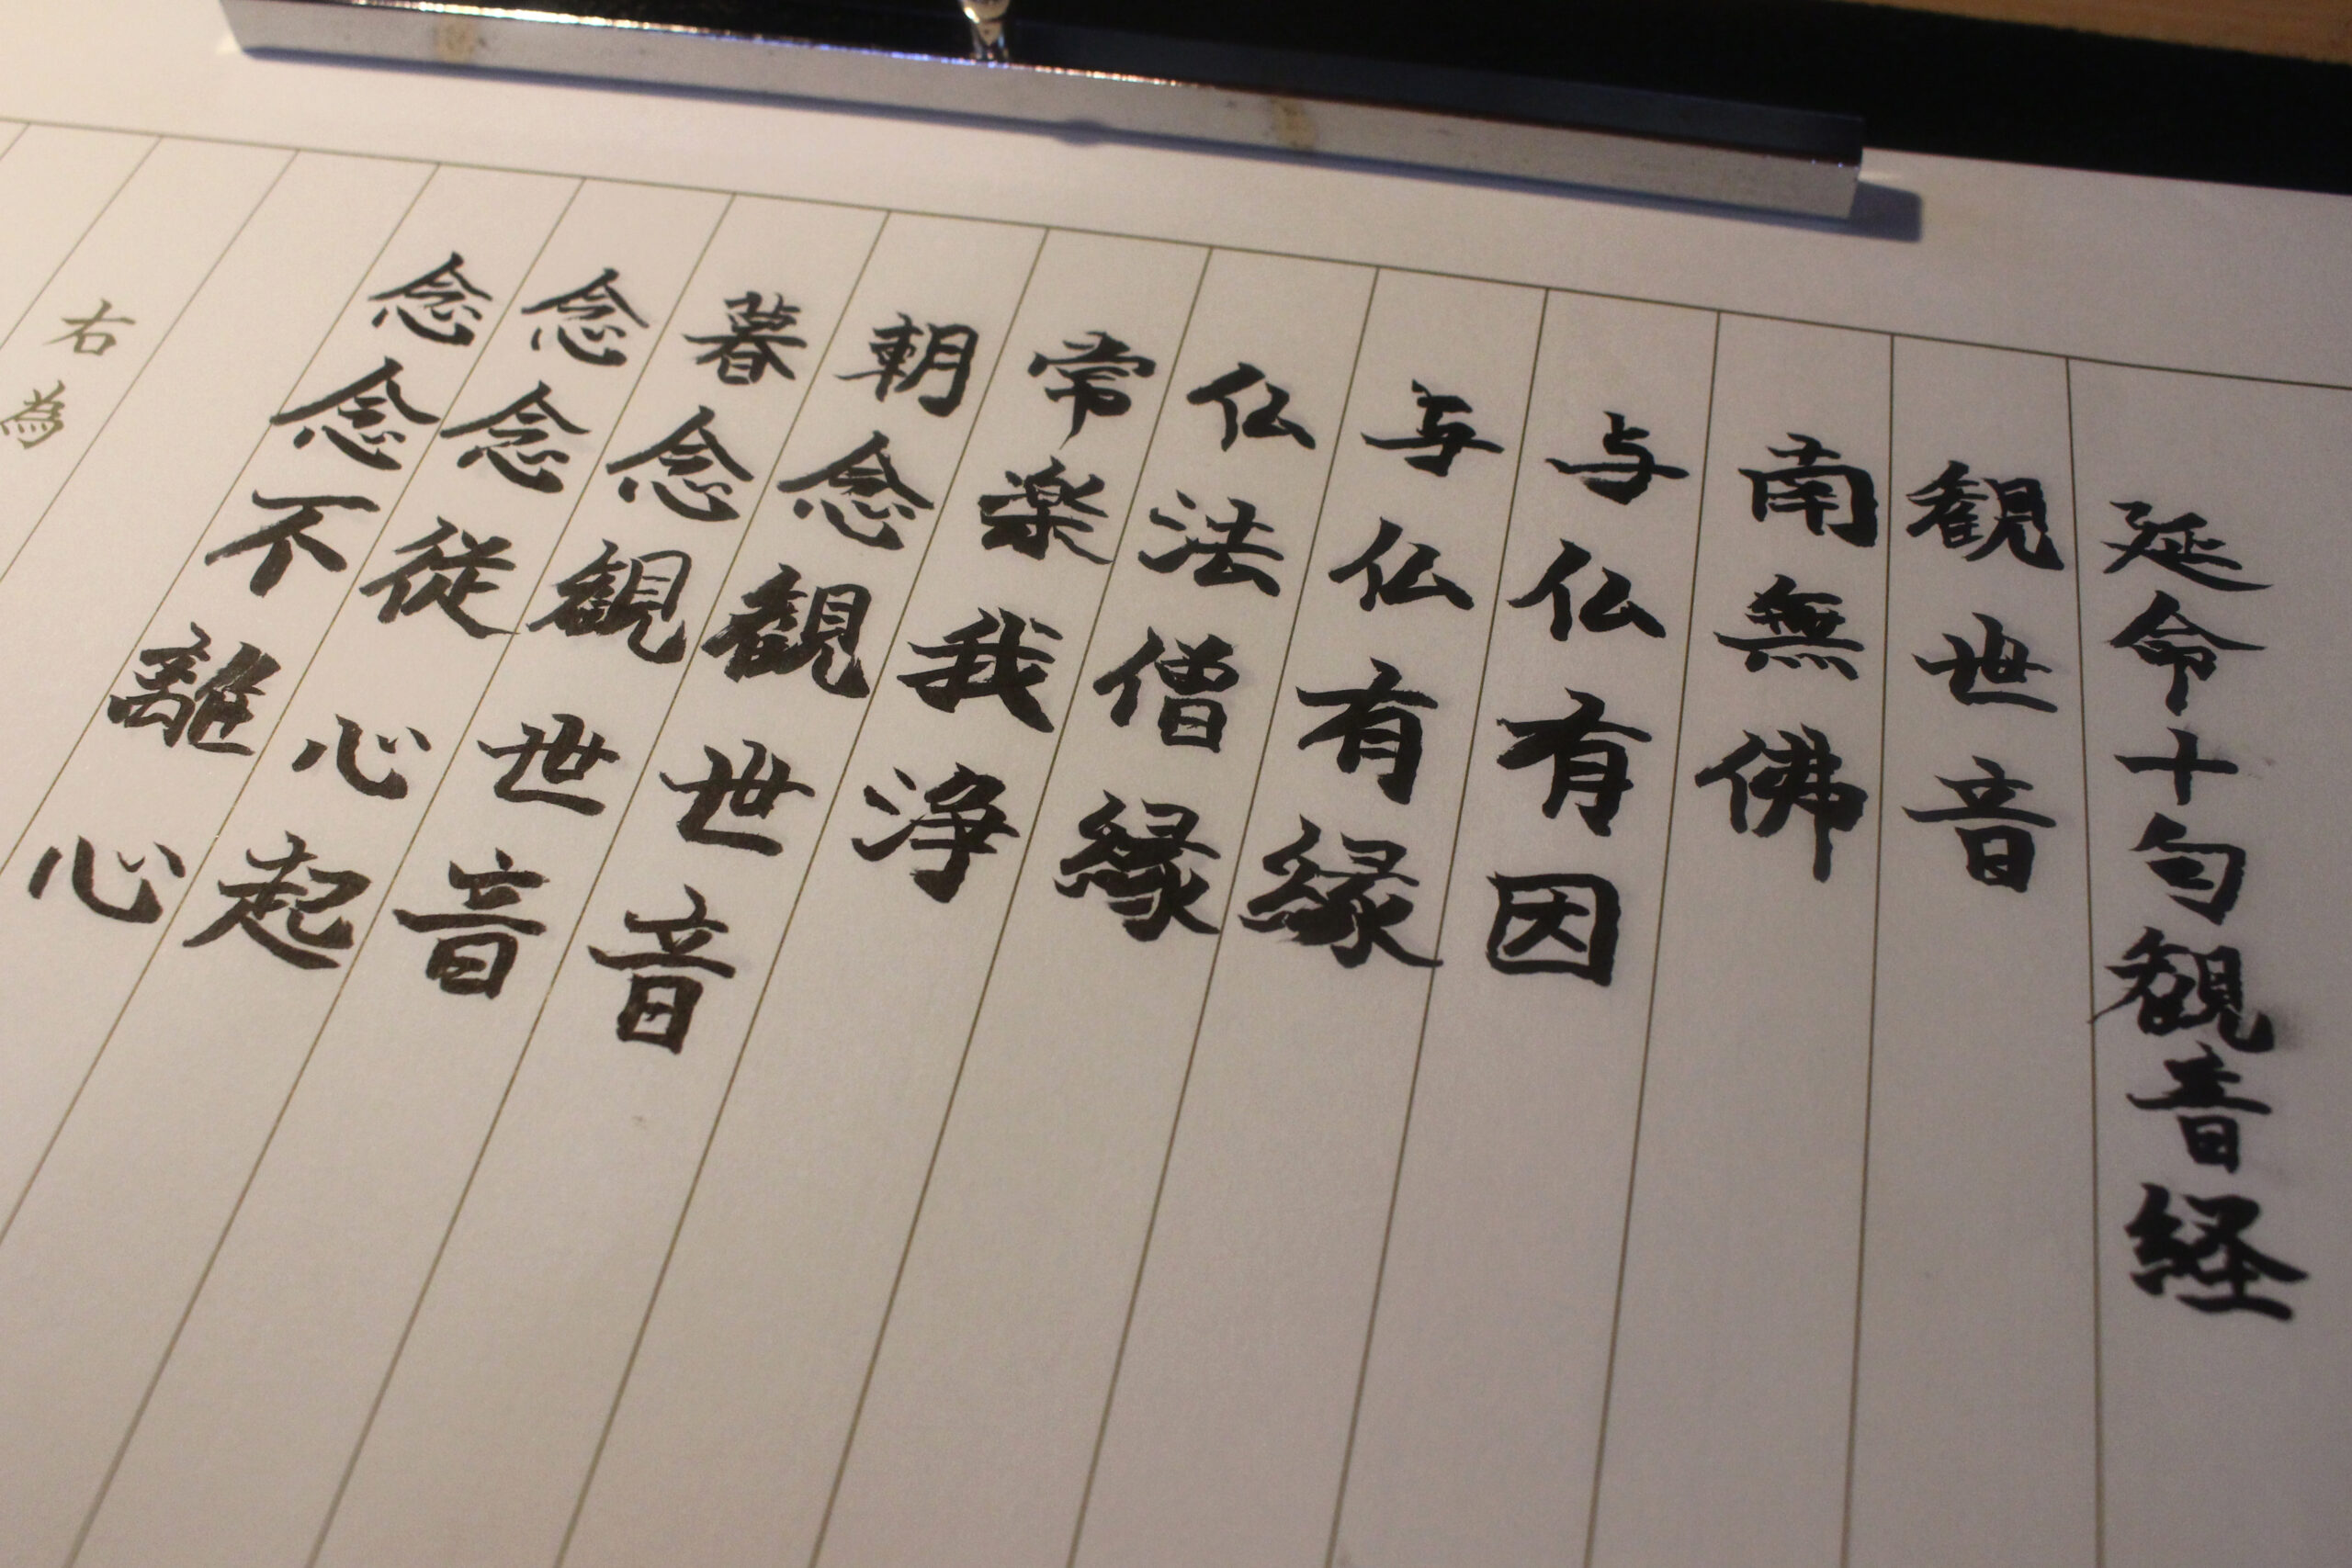 延命十句観音経
観世音
南無佛
与仏有因
与仏有縁
仏法僧縁
常楽我浄
朝念観世音
暮念観世音
念念従心起
念念不離心
右為